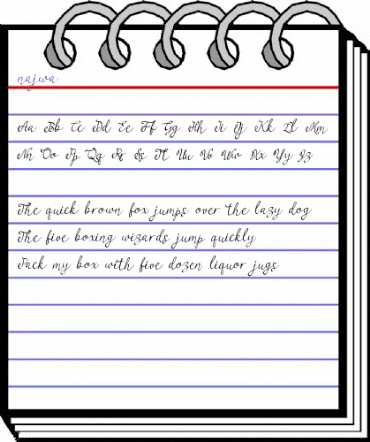 najwa
Aa Bb Cc Dd Ee Ff Gg Hh Ii Jj Kk Ll Mm
Nn Oo Pp Qq Rr Ss Tt Uu Vv Ww Xx Yy Zz
The quick brown fox jumps over the lazy dog
The five boxing wizards jump quickly
Pack my box with five dozen liquor jugs